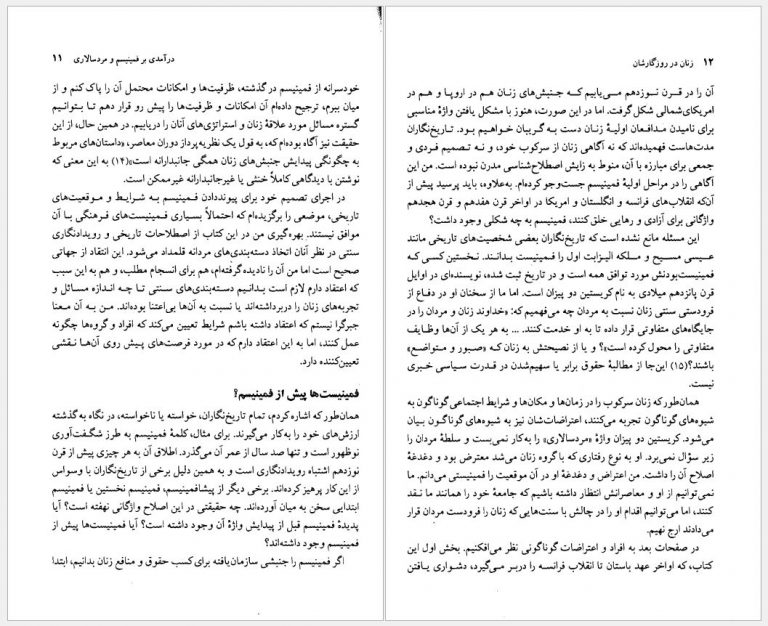 درآمدی بر فمینیسم و مردسالاری ۱۱
خودسرانه از فمینیسم درگذشته، ظرفیت‌ها و امکانات محتمل آن را پاک کنم و از
میان ببرم، ترجیح داده‌ام آن امکانات و ظرفیت‌ها را پیش رو قرار دهم تا بتوانیم
گستره مسائل مورد علاقهٔ زنان و استراتژی‌های آنان را دریابیم. در همین حال، از این
حقیقت نیز آگاه بوده‌ام که، به قول یک نظریه‌پرداز دوران معاصر، «داستان‌های مربوط
به چگونگی پیدایش جنبش‌های زنان همگی جانبدارانه است»(۱۴) به این معنی که
نوشتن با دیدگاهی کاملاً خنثی یا غیرجانبدارانه غیرممکن است.
در اجرای تصمیم خود برای پیونددادن فمینیسم به شرایط و موقعیت‌های
تاریخی، موضعی را برگزیده‌ام که احتمالاً بسیاری فمینیست‌های فرهنگی با آن
موافق نیستند. بهره‌گیری من در این کتاب از اصطلاحات تاریخی و رویدادنگاری
سنتی در نظر آنان اتخاذ دسته‌بندی‌های مردانه قلمداد می‌شود. این انتقاد از جهاتی
صحیح است اما من آن را نادیده گرفته‌ام، هم برای انسجام مطلب، و هم به این سبب
که اعتقاد دارم لازم است بدانیم دسته‌بندی‌های سنتی تا چه اندازه مسائل و
تجربه‌های زنان را دربرداشته‌اند یا نسبت به آن‌ها بی‌اعتنا بوده‌اند. من به آن معنا
جبرگرا نیستم که اعتقاد داشته باشم شرایط تعیین می‌کند که افراد و گروه‌ها چگونه
عمل کنند، اما به این اعتقاد دارم که در مورد فرصت‌های پیش روی آن‌ها نقشی
تعیین‌کننده دارد.
فمینیست‌ها پیش از فمینیسم؟
همان‌طور که اشاره کردم، تمام تاریخ‌نگاران، خواسته یا ناخواسته، در نگاه به گذشته
ارزش‌های خود را به‌کار می‌گیرند. برای مثال، کلمهٔ فمینیسم به طرز شگفت‌آوری
نوظهور است و تنها صد سال از عمر آن می‌گذرد. اطلاق آن به هر چیزی پیش از قرن
نوزدهم اشتباه رویدادنگاری است و به همین دلیل برخی از تاریخ‌نگاران با وسواس
از این کار پرهیز کرده‌اند. برخی دیگر از پیشافمینیسم، فمینیسم نخستین یا فمینیسم
ابتدایی سخن به میان آورده‌اند. چه حقیقتی در این اصلاح واژگانی نهفته است؟ آیا
پدیدهٔ فمینیسم قبل از پیدایش واژهٔ آن وجود داشته است؟ آیا فمینیست‌ها پیش از
فمینیسم وجود داشته‌اند؟
اگر فمینیسم را جنبشی سازمان‌یافته برای کسب حقوق و منافع زنان بدانیم، ابتدا
۱۲ زنان در روزگارشان
آن را در قرن نوزدهم می‌یابیم که جنبش‌های زنان هم در اروپا و هم در
امریکای‌شمالی شکل گرفت. اما در این صورت، هنوز با مشکل یافتن واژهٔ مناسبی
برای نامیدن مدافعان اولیهٔ زنان دست به گریبان خواهیم بود. تاریخ‌نگاران
مدت‌هاست فهمیده‌اند که نه آگاهی زنان از سرکوب خود، و نه تصمیم فردی و
جمعی برای مبارزه با آن، منوط به زایش اصطلاح‌شناسی مدرن نبوده است. من این
آگاهی را در مراحل اولیهٔ فمینیسم جست‌وجو کرده‌ام. به‌علاوه، باید پرسید پیش از
آن‌که انقلاب‌های فرانسه و انگلستان و امریکا در اواخر قرن هفدهم و قرن هجدهم
واژگانی برای آزادی و رهایی خلق کنند، فمینیسم به چه شکلی وجود داشت؟
این مسئله مانع نشده است که تاریخ‌نگاران بعضی شخصیت‌های تاریخی مانند
عیسی مسیح و ملکه الیزابت اول را فمینیست بدانند. نخستین کسی که
فمینیست‌بودنش مورد توافق همه است و در تاریخ ثبت شده، نویسنده‌ای در اوایل
قرن پانزدهم میلادی به نام کریستین دو پیزان است. اما ما از سخنان او در دفاع از
فرودستی سنتی زنان نسبت به مردان چه می‌فهمیم که: «خداوند زنان و مردان را در
جایگاه‌های متفاوتی قرار داده تا به او خدمت کنند. ... به هر یک از آن‌ها وظایف
متفاوتی را محول کرده است»؟ و یا از نصیحتش به زنان که «صبور و متواضع»
باشند؟(۱۵) این‌جا از مطالبهٔ حقوق برابر یا سهیم‌شدن در قدرت سیاسی خبری
نیست.
همان‌طور که زنان سرکوب را در زمان‌ها و مکان‌ها و شرایط اجتماعی گوناگون به
شیوه‌های گوناگون تجربه می‌کنند، اعتراضات‌شان نیز به شیوه‌های گوناگون بیان
می‌شود. کریستین دو پیزان واژهٔ «مردسالاری» را به‌کار نمی‌بست و سلطهٔ مردان را
زیر سؤال نمی‌برد. او به نوع رفتاری که با گروه زنان می‌شد معترض بود و دغدغهٔ
اصلاح آن را داشت. من اعتراض و دغدغهٔ او در آن موقعیت را فمینیستی می‌دانم. ما
نمی‌توانیم از او و معاصرانش انتظار داشته باشیم که جامعهٔ خود را همانند ما نقد
کنند، اما می‌توانیم اقدام او را در چالش با سنت‌هایی که زنان را فرودست مردان قرار
می‌دادند ارج نهیم.
در صفحات بعد به افراد و اعتراضات گوناگونی نظر می‌افکنیم. بخش اول این
کتاب، که اواخر عهد باستان تا انقلاب فرانسه را دربر می‌گیرد، دشواری یافتن